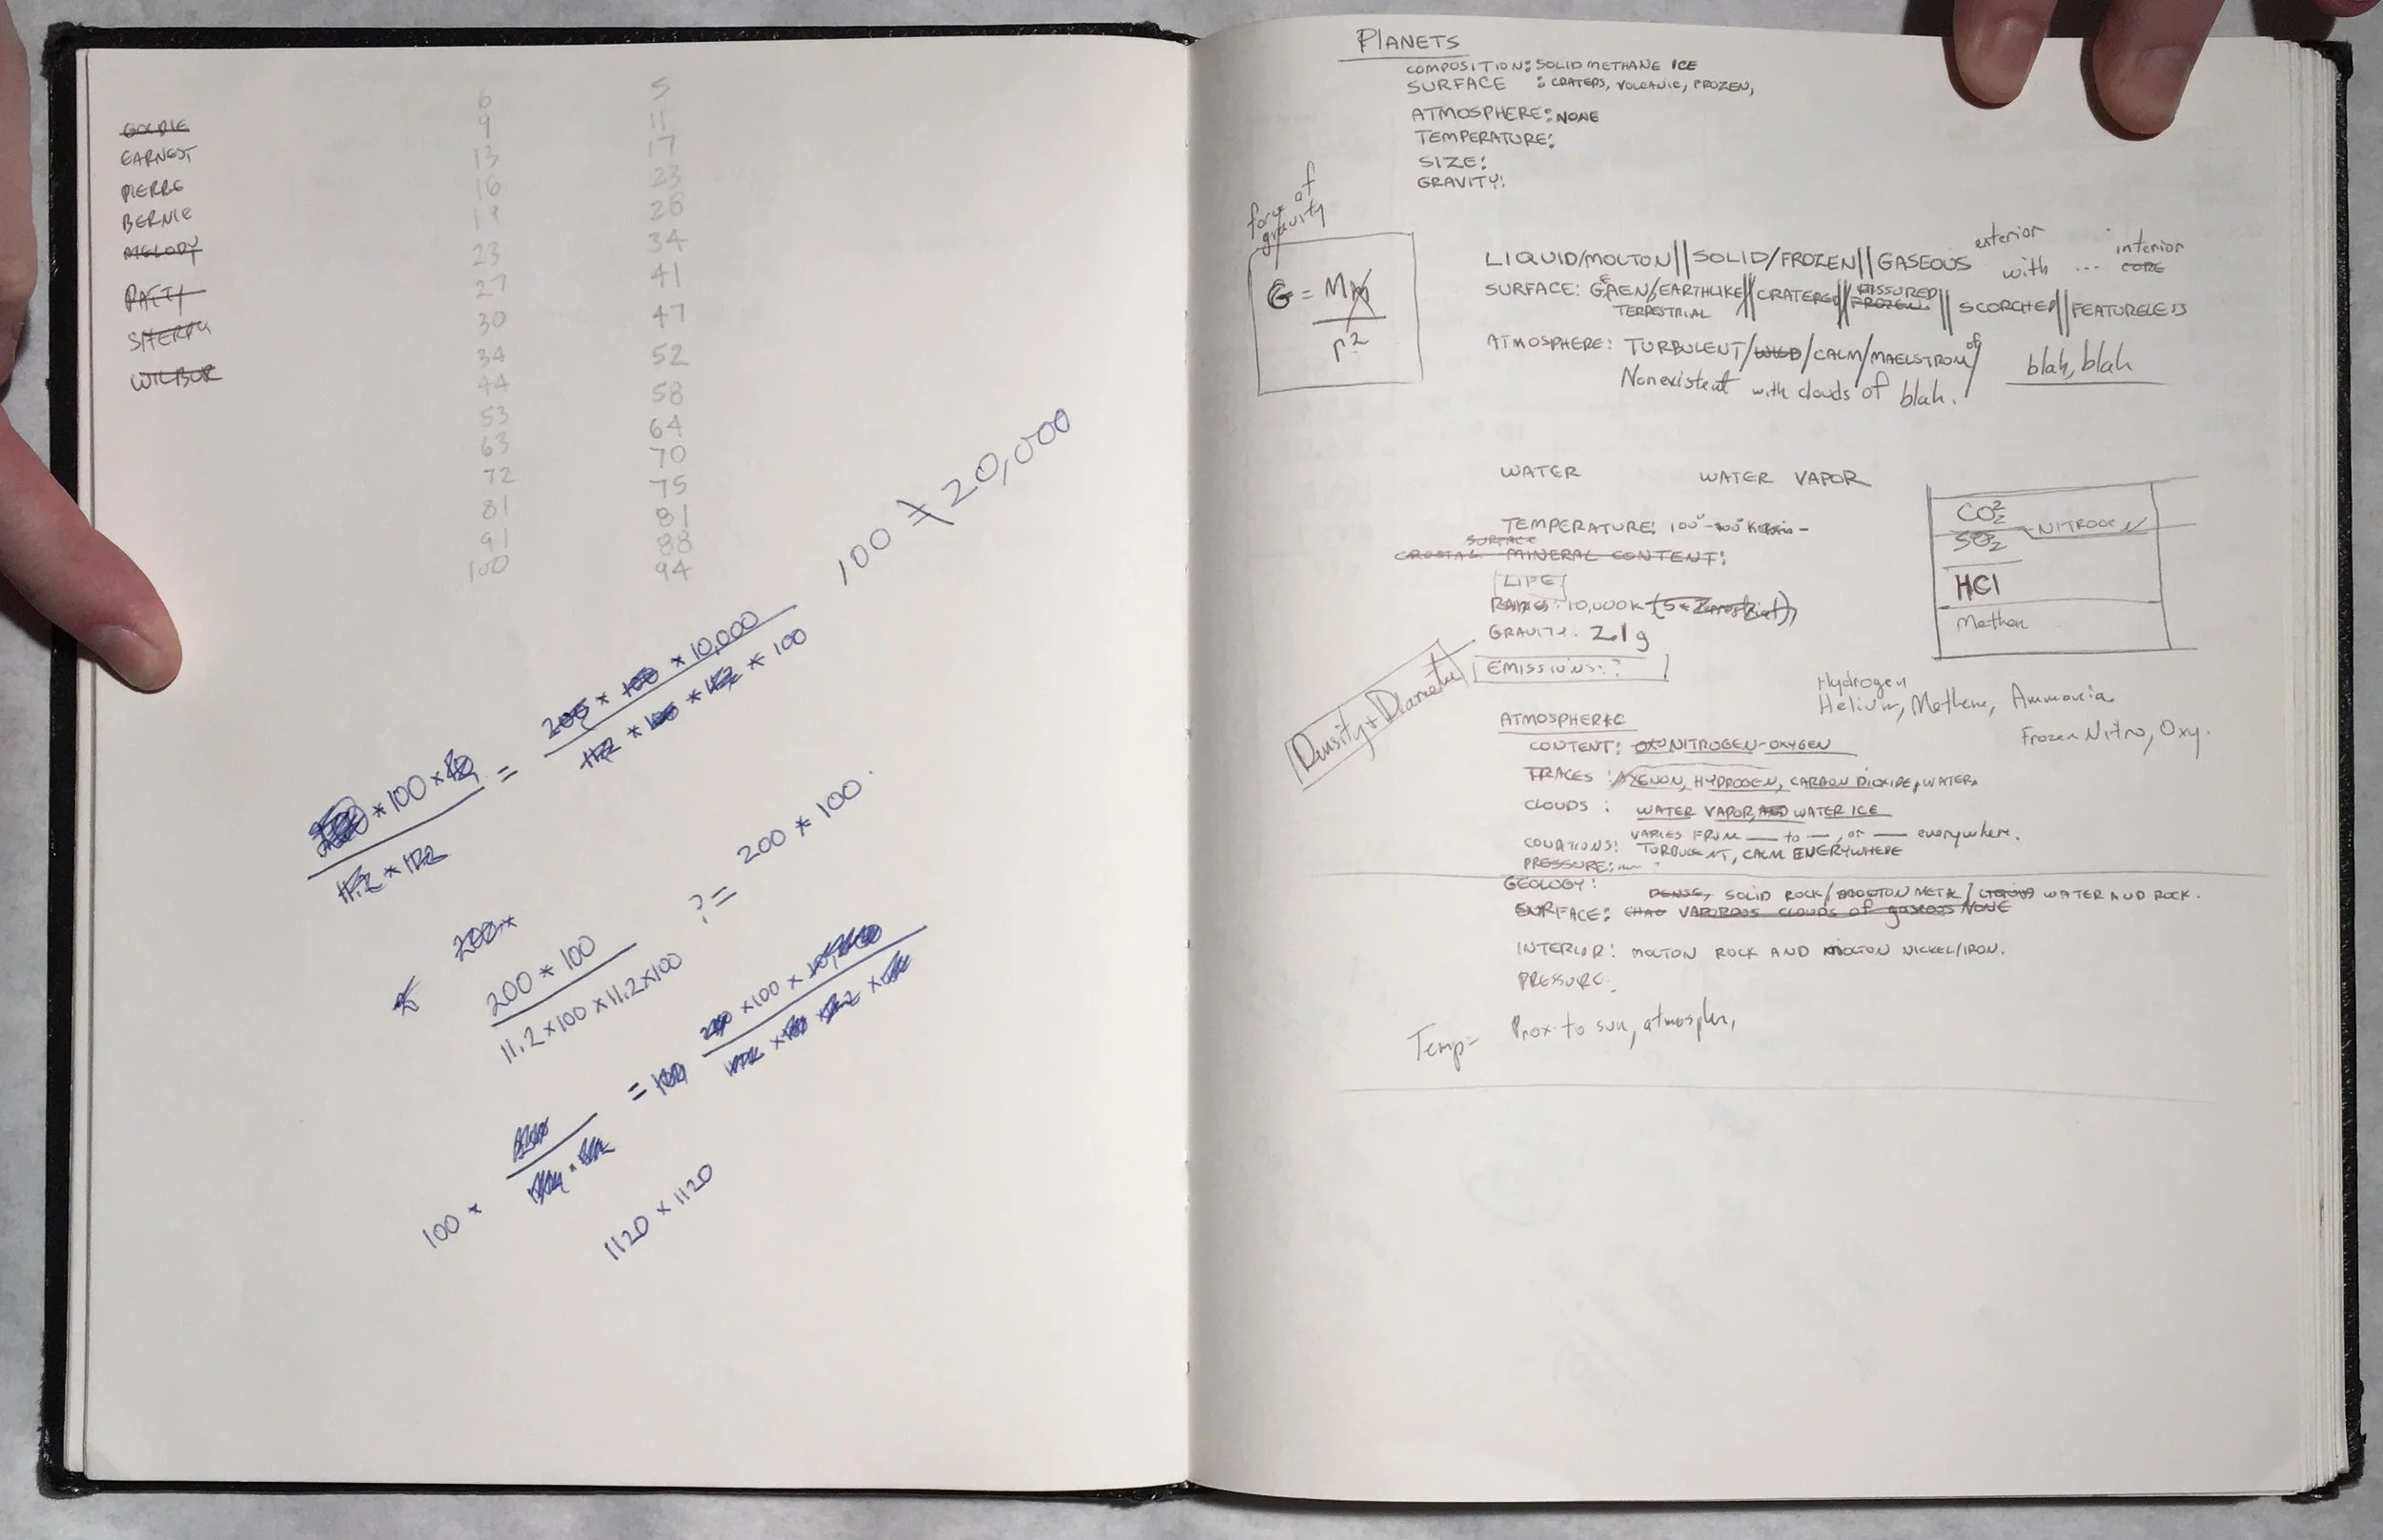 GOLDIE
EARNEST
PIERRE
BERNIE
MELODY
PATTY
WILBUR
6 5
9 11
13 17
16 23
19 28
23 34
27 41
30 47
34 52
44 58
53 64
63 70
72 75
81 81
91 88
100 94
100 ≠ 20,000
200 * 100 * 10,000
* 100 * 112 * 100
* 100 *
=
11.2 * 112
200*
200 * 100
11.2 x 100 x 11.2 x 100
?= 200 * 100.
= 100
x 100 x
100 *
1120 x 1120
PLANETS
COMPOSITION: SOLID METHANE ICE
SURFACE : CRATERS, VOLCANIC, FROZEN,
ATMOSPHERE: NONE
TEMPERATURE:
SIZE:
GRAVITY:
force of
gravity
G = MM
r²
LIQUID/MOLTON||SOLID/FROZEN||GASEOUS exterior with ... interior
CORE
SURFACE: GAEN/EARTHLIKE||CRATERED||FROZEN||SCORCHED||FEATURELESS
FISSURED
TERRESTRIAL
ATMOSPHERE: TURBULENT/WILD/CALM/MAELSTROM of/ blah, blah
Nonexistent with clouds of blah.
WATER WATER VAPOR
CO2
NITROGEN
SO2
HCl
Methan
TEMPERATURE: 100°-400° Kelvin -
SURFACE
CRUSTAL MINERAL CONTENT:
LIFE
RADIUS: 10,000K (5* Terrestrial)
GRAVITY: 2.1g
EMISSIONS:?
Density + Diameter
Hydrogen
Helium, Methene, Ammonia
Frozen Nitro, Oxy.
ATMOSPHERIC
CONTENT: NITROGEN-OXYGEN
TRACES : XENON, HYDROGEN, CARBON DIOXIDE, WATER,
CLOUDS : WATER VAPOR, AND WATER ICE
VARIES FROM __ to __, or __ everywhere.
CONDITIONS: TURBULENT, CALM EVERYWHERE
PRESSURE:
GEOLOGY:
DENSE, SOLID ROCK/MOLTON METAL/LIQUID WATER AND ROCK.
SURFACE: CHAO VAPOROUS CLOUDS of gaseous NONE
INTERIOR: MOLTON ROCK AND MOLTON NICKEL/IRON.
PRESSURE.
Temp= Prox. to sun, atmospher,